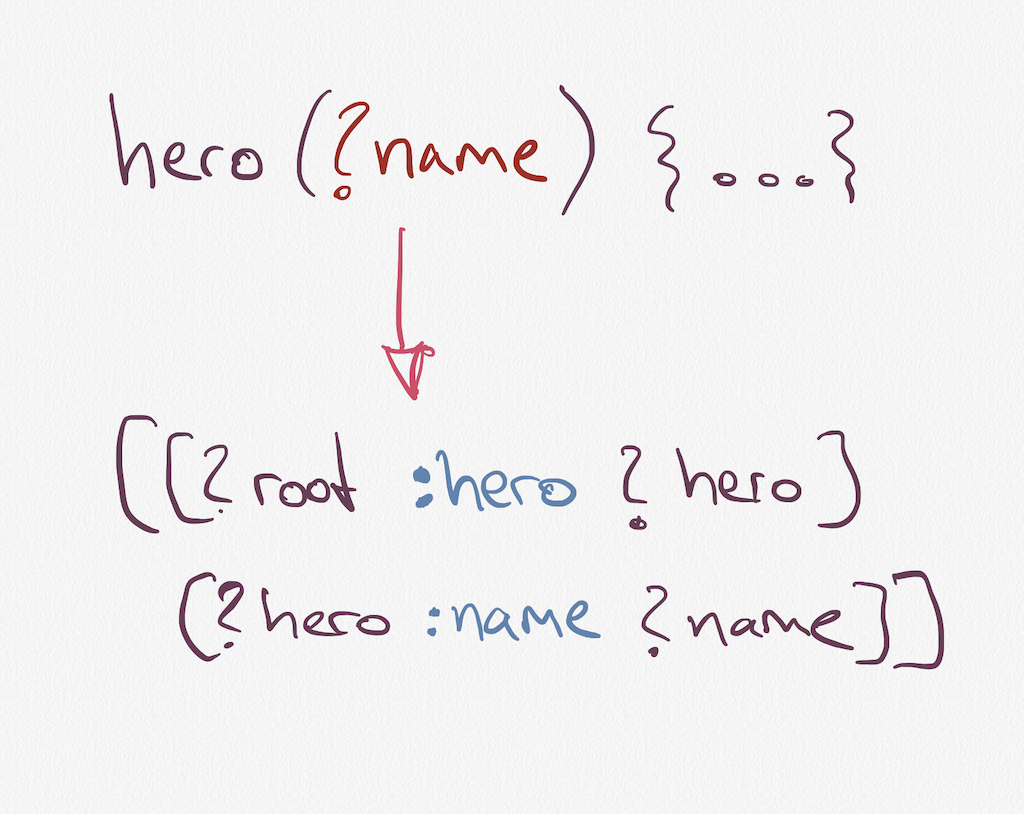 hero (?name) {...}
[[?root :hero ?hero]
[?hero :name ?name]]